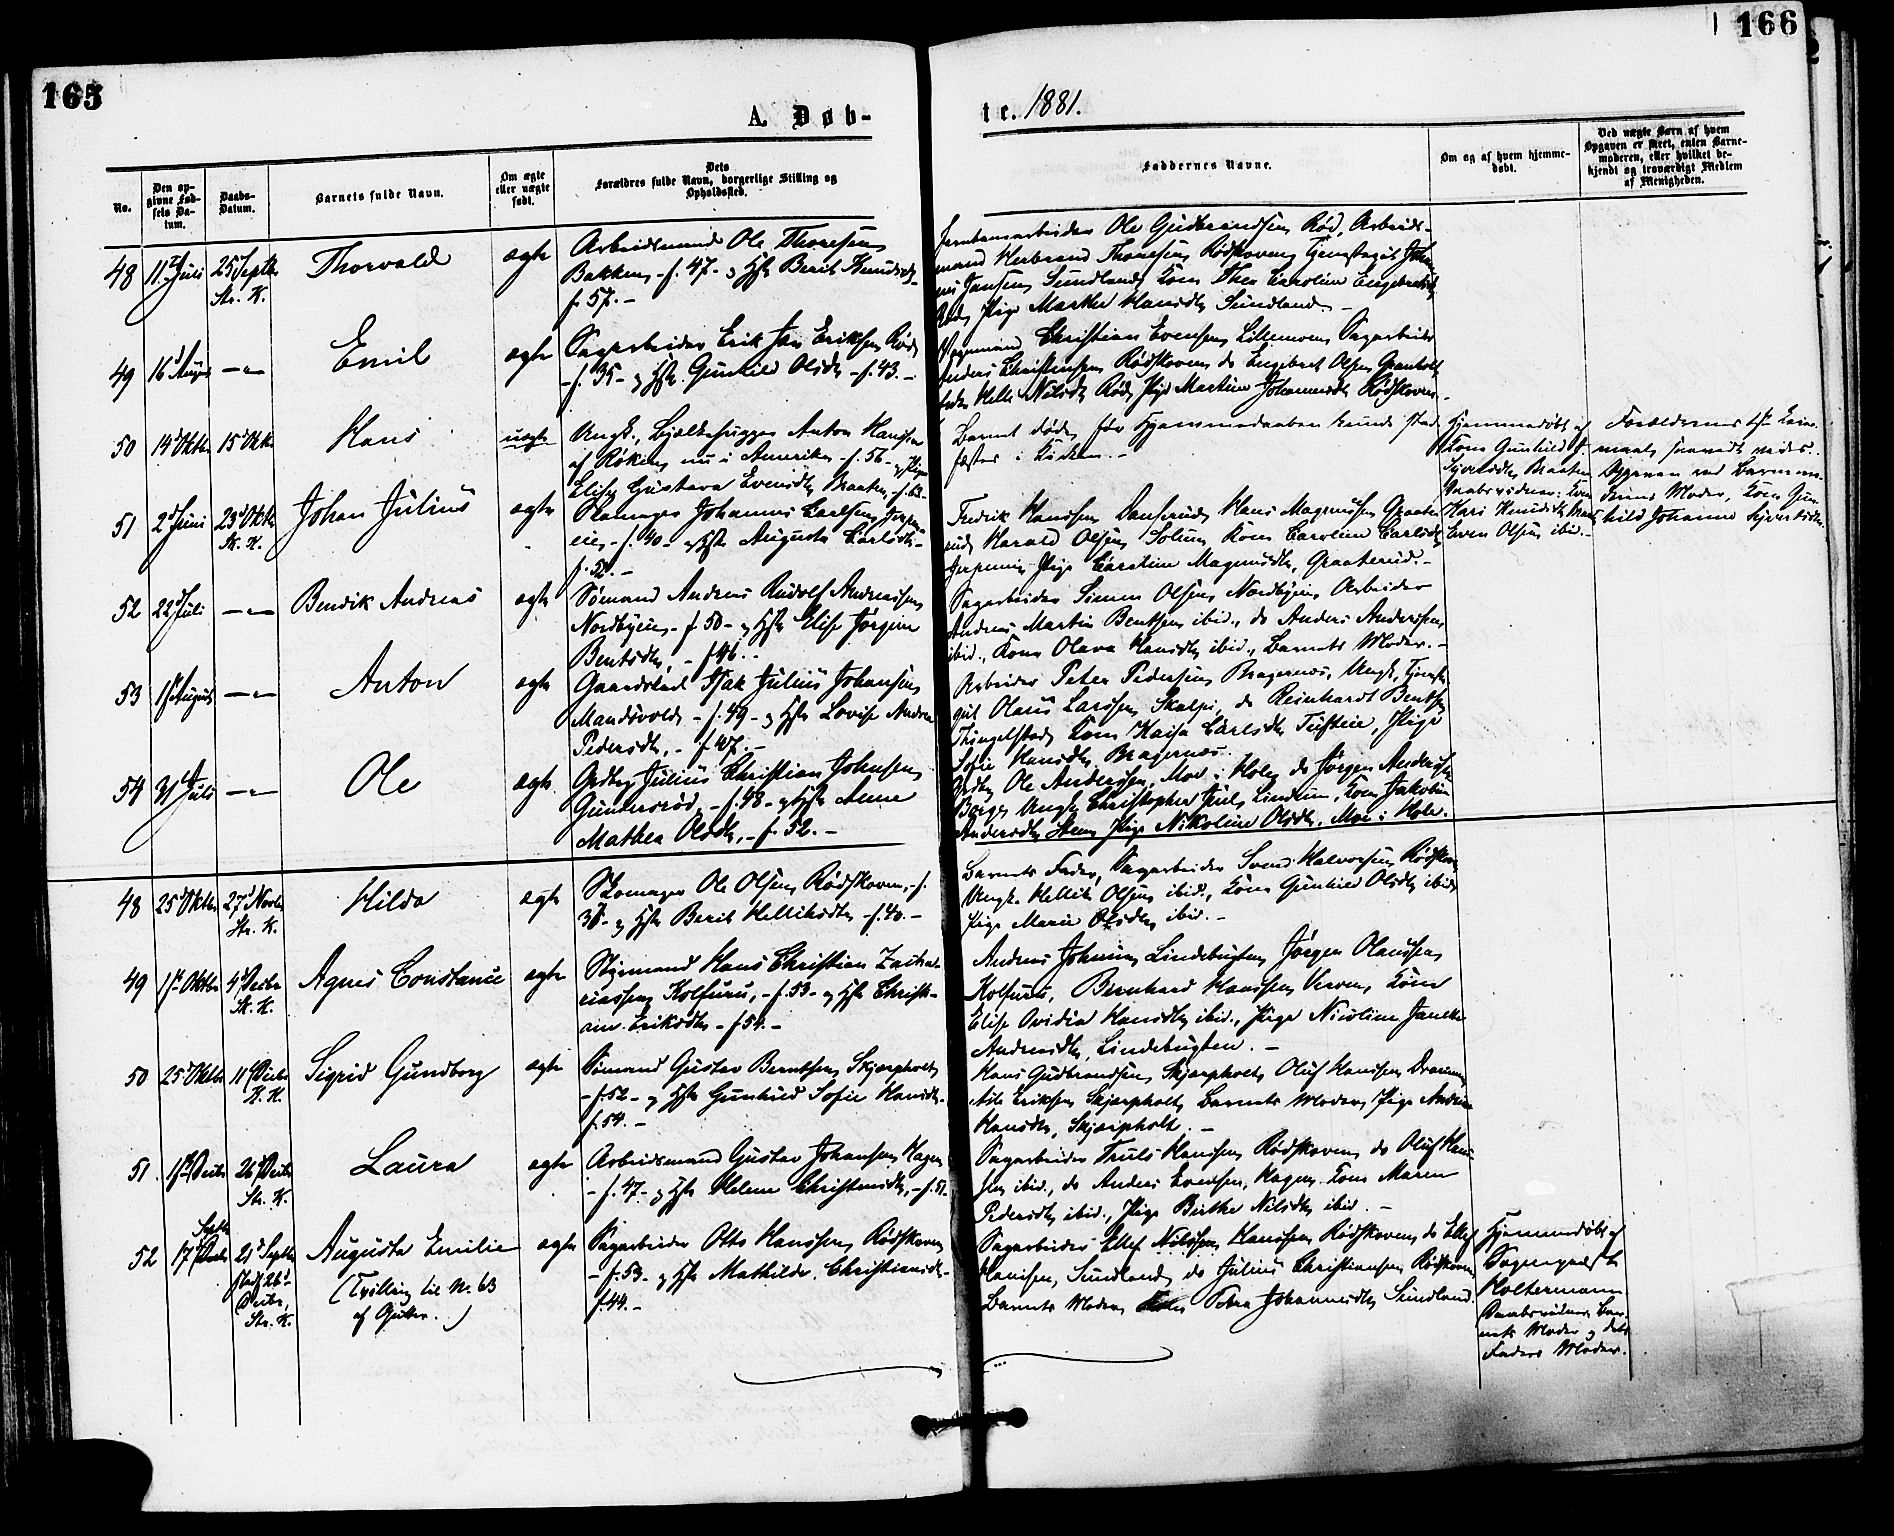 165
166
A. Døb-
te. 1881.
No.
Den op-
givne Fød-
sels Da-
tum.
Daabs-
Datum.
Barnets fulde Navn.
Om ægte
eller uægte
født.
Dets
Forældres fulde Navn, borgerlige Stilling og
Opholdssted.
Faddernes Navne.
Om og af hvem hjemme-
døbt.
Ved uægte Børn af hvem
Opgaven er skeet, enten Barne-
moderen, eller hvilket be-
kjendt og troværdigt Medlem
af Menigheden.
48 11 Juli 25 Septbr Str. K.
Thorvald
ægte
Arbeidsmand Ole Thoresen
Bakken - f. 47 - og Hstr Berit Knudsdtr
f. 57. -
Ole Gudbrandsen Rød, Arbeids-
mand Herbrand Thoresen Rødskoven, Tjenstegut
Jansen Sundland, Kone Thea Caroline Engebretsdtr
Rød, Pige Marthe Hansdtr Sundland. -
49 16 August - " -
Emil
ægte
Sagarbeider Erik Jan Eriksen Rød
- f. 35 - og Hstr. Gunhild Olsdtr - f. 43. -
Christian Evensen Lillemoen, Sagarbeider
Anders Christensen Rødskoven, do Engebret Olsen Granholt
Helle Nilsdtr Rød, Pige Martine Johannesdtr Rødskoven. -
50 14 Oktbr 15 Oktbr
Hans
uægte
Ungk., Bjælkehugger Anton Hansen
af Røken, nu i Amerika - f. 56 - og Pige
Elise Gustava Evensdtr Braaten, - f. 63 -
Barnet døde, før Hjemmedaaben kunde stad-
fæstes i Kirken. -
Hjemmedøbt af
Kone Gunhild J.
Syversdtr Braaten
Daabsvidner: Kone
Kari Knudsdtr
Even Olsen ibid. -
Forældrenes 1ste Leier-
maal, saavidt vides.
Opgaven ved Barnemo-
derens Moder, Kone Gun-
hild Johanne Syvertsdtr.
51 2 Juni 23 Oktbr St. K.
Johan Julius
ægte
Skomager Johannes Carlsen,
- f. 40 - og Hstr Augusta Carlsdtr -
f. 52. -
Fredrik Hansen Dansrud, Hans Magnussen Graate-
rud, Harald Olsen Solum, Kone Caroline Carlsdtr
Pige Caroline Magnusdtr, Graaterud. -
52 22 Juli - " -
Bendik Andreas
ægte
Sømand Andreas Rudolf Andreassen
Nordbyen, - f. 50 - og Hstr Elise Jørgine
Bentsdtr, - f. 46. -
Sagarbeider Simen Olsen Nordbyen, Arbeider
Andreas Martin Bentsen ibid., do Anders Andersen
ibid., Kone Olava Hansdtr ibid., Barnets Moder. -
53 1 August - " -
Anton
ægte
Gaardsbest. Isak Julius Johansen
Mandsvold, - f. 49 - og Hstr Lovise Andrea
Pedersdtr, - f. 47. -
Arbeider Peter Pedersen Bragernæs, Ungk., Tjeneste-
gut Olaus Larssen Skalpi, do Reinhardt Bentsen
Thingelstad, Kone Kaisa Carlsdtr Tufteie, Pige
Sofie Hansdtr, Bragernæs.
54 31 Juli - " -
Ole
ægte
Grdbr Julius Christian Johnsen
Gundersrød, - f. 48 - og Hstr Anne
Mathea Olsdtr, - f. 52. -
Grdbr Ole Andersen, Moe i Hole, do Jørgen Andersen
Borge, Ungk. Christopher Juul, Lindum, Kone Jakobine
Andersdtr Steen, Pige Nikoline Olsdtr, Moe i Hole.
48 25 Oktbr 27 Novbr Str. K.
Hilda
ægte
Skomager Ole Olsen, Rødskoven, - f.
38 - og Hstr Berit Helliksdtr - f. 40. -
Barnets Fader, Sagarbeider Svend Halvorsen Rødskoven
Ungk. Hellik Olsen ibid., Kone Gunhild Olsdtr ibid
Pige Marie Olsdtr ibid. -
49 1ste Oktbr 4 Decbr St. K.
Agnes Constance
ægte
Styrmand Hans Christian Zacha-
riassen Kolfuru, - f. 53 - og Hstr Christi-
ane Eriksdtr - f. 54. -
Andreas Johnsen, Lindebugten, Jørgen Olaussen
Kolfuru, Bernhard Hansen Verven, Kone
Elise Ovidia Hansdtr ibid., Pige Nicoline
Andreasdtr, Lindebugten. -
50 25 Oktbr 11 Decbr St. K.
Sigrid Gundborg
ægte
Sømand Gustav Berntsen, Skjærpholt,
- f. 52 - og Hstr Gunhild Sofie Hansdtr -
f. 54. -
Hans Gudbrandsen Skjærpholt, Oluf Hansen Drammen
Nils Eriksen Skjærpholt, Barnets Moder, Pige Andrine
Hansdtr, Skjærpholt. -
51. 1ste Decbr 26 Decbr Str. K.
Laura
ægte
Arbeidsmand Gustav Johansen Hagen
- f. 47 - og Hstr Helene Christensdtr, - f. 51 -
Sagarbeider Truls Hansen Rødskoven, do Oluf Han-
sen ibid., do Anders Evensen, Hagen, Kone Maren
Pedersdtr ibid., Pige Birthe Nilsdtr ibid. -
52 17 Septbr 21 Septbr
Stadf. 26
Decbr,
Str. K.
Augusta Emilie
(Tvilling til No. 63
af Gutter.)
ægte
Sagarbeider Otto Hansen, Rødskoven
- f. 53 - og Hstr Mathilde Christiansdtr -
f. 44. -
Sagarbeider Ellef Hansen Rødskoven, do Ellef
Hansen, Sundland, do Julius Christiansen Rødskoven
Barnets Moder, Petra Johannesdtr Sundland.
Hjemmedøbt af
Sogneprest
Holtermann
Daabsvidner Bar-
nets Moder og dets
Faders Moder.